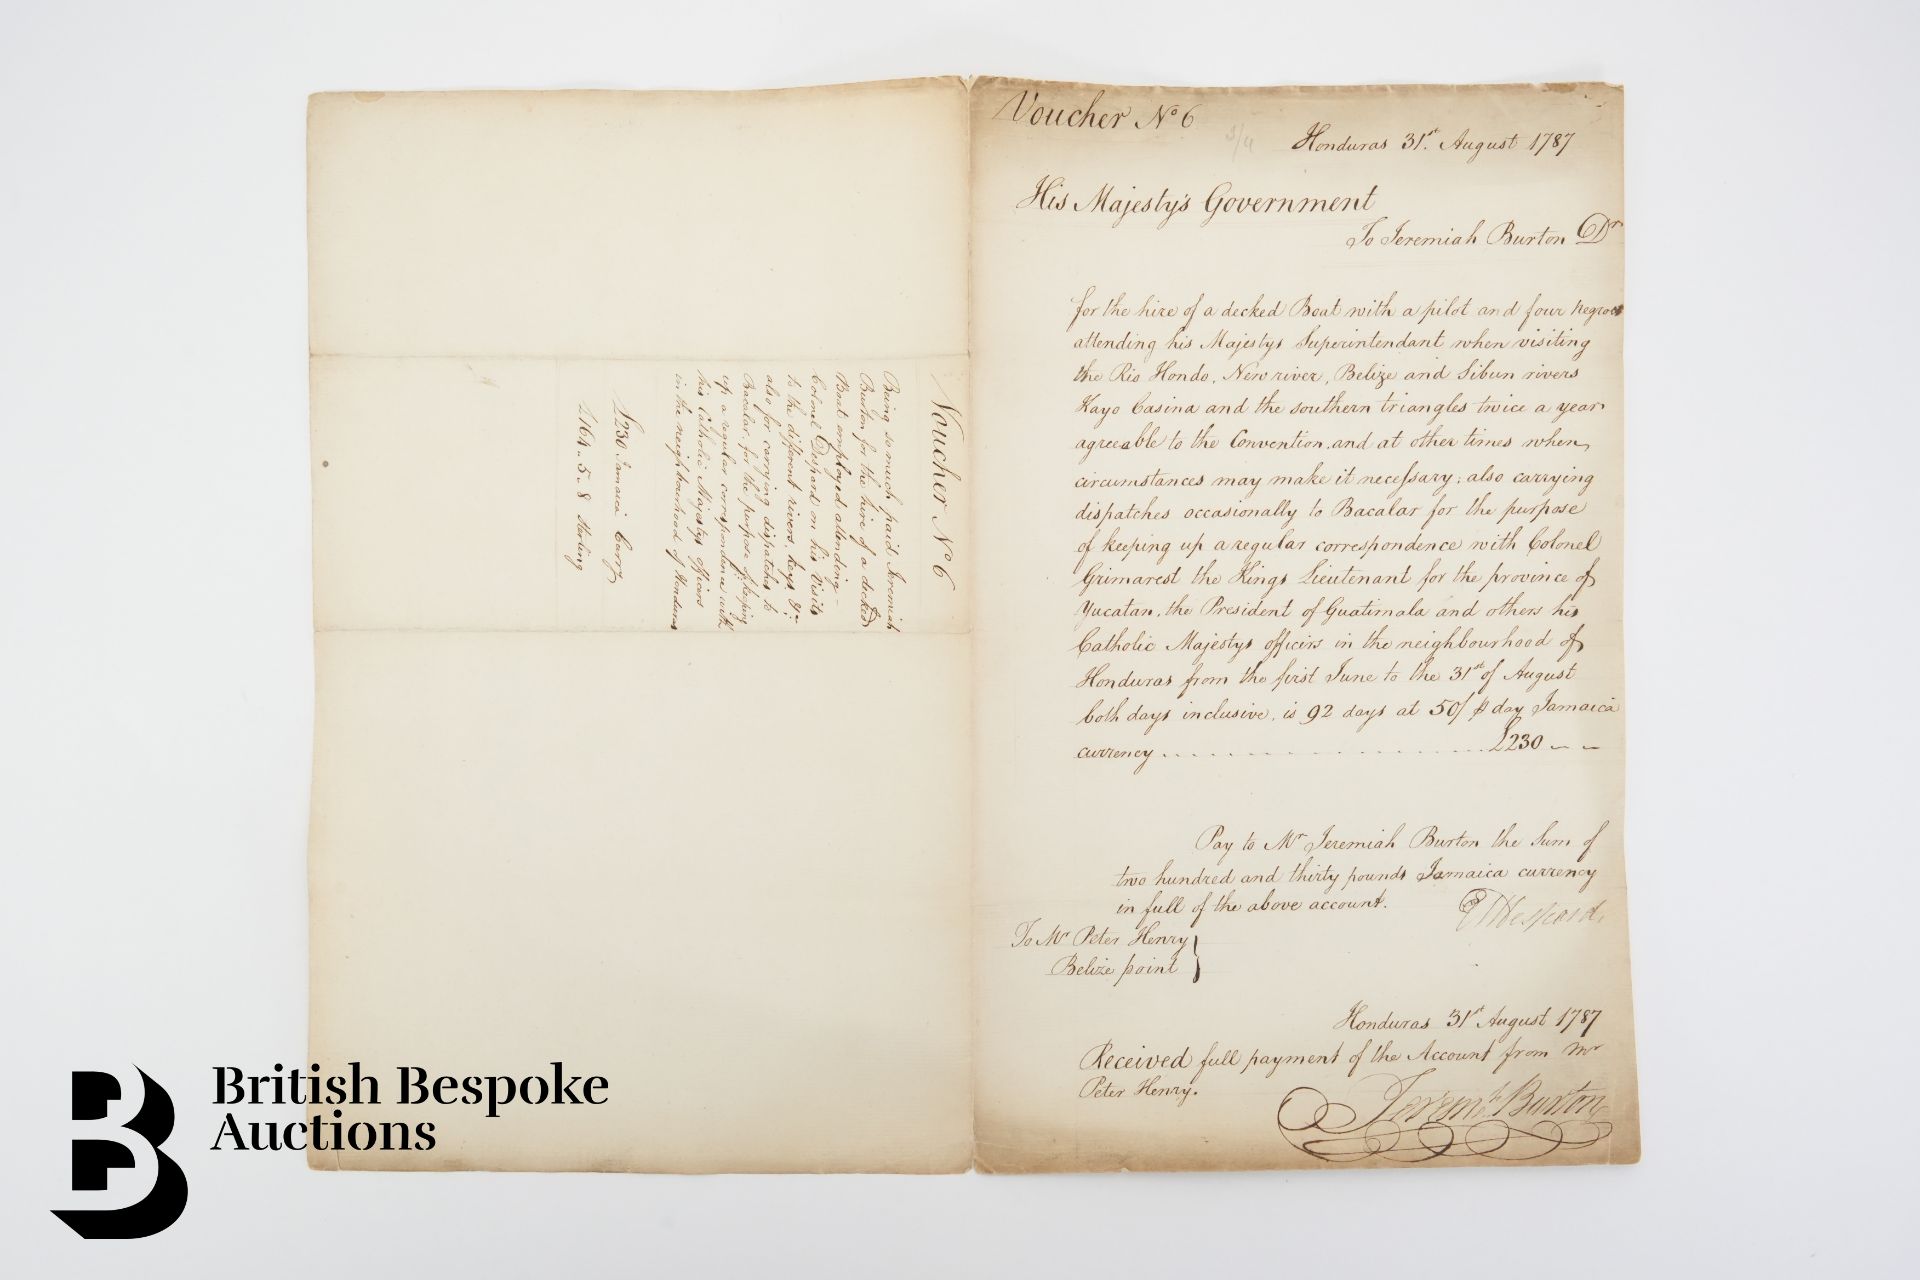 Voucher No 6
Being so much paid Jeremiah
Burton for the hire of a decked
Boat employed attending
Colonel Despard on his visits
to the different rivers, keys, &c.
also for carrying dispatches to
Bacalar, for the purpose of keeping
up a regular correspondence with
his Catholic Majestys officers
in the neighbourhood of Honduras
£230 Jamaica Curry
£164 .. 5 .. 8 Sterling
Voucher No 6
3/4
Honduras 31st August 1787
His Majesty's Government
To Jeremiah Burton Dr
for the hire of a decked Boat with a pilot and four negroes
attending his Majestys Superintendant when visiting
the Rio Hondo, New river, Belize and Sibun rivers
Kayo Casina and the southern triangles twice a year
agreeable to the Convention, and at other times when
circumstances may make it necessary; also carrying
dispatches occasionally to Bacalar for the purpose
of keeping up a regular correspondence with Colonel
Grimarest the Kings Lieutenant for the province of
Yucatan, the President of Guatimala and others his
Catholic Majestys officers in the neighbourhood of
Honduras from the first June to the 31st of August
both days inclusive, is 92 days at 50/ ⅌ day Jamaica
currency .................... £230 – –
Pay to Mr Jeremiah Burton the Sum of
two hundred and thirty pounds Jamaica currency
in full of the above account.
EMDespard
To Mr Peter Henry
Belize point
Honduras 31st August 1787
Received full payment of the Account from Mr
Peter Henry.
Jeremh Burton
British Bespoke
Auctions